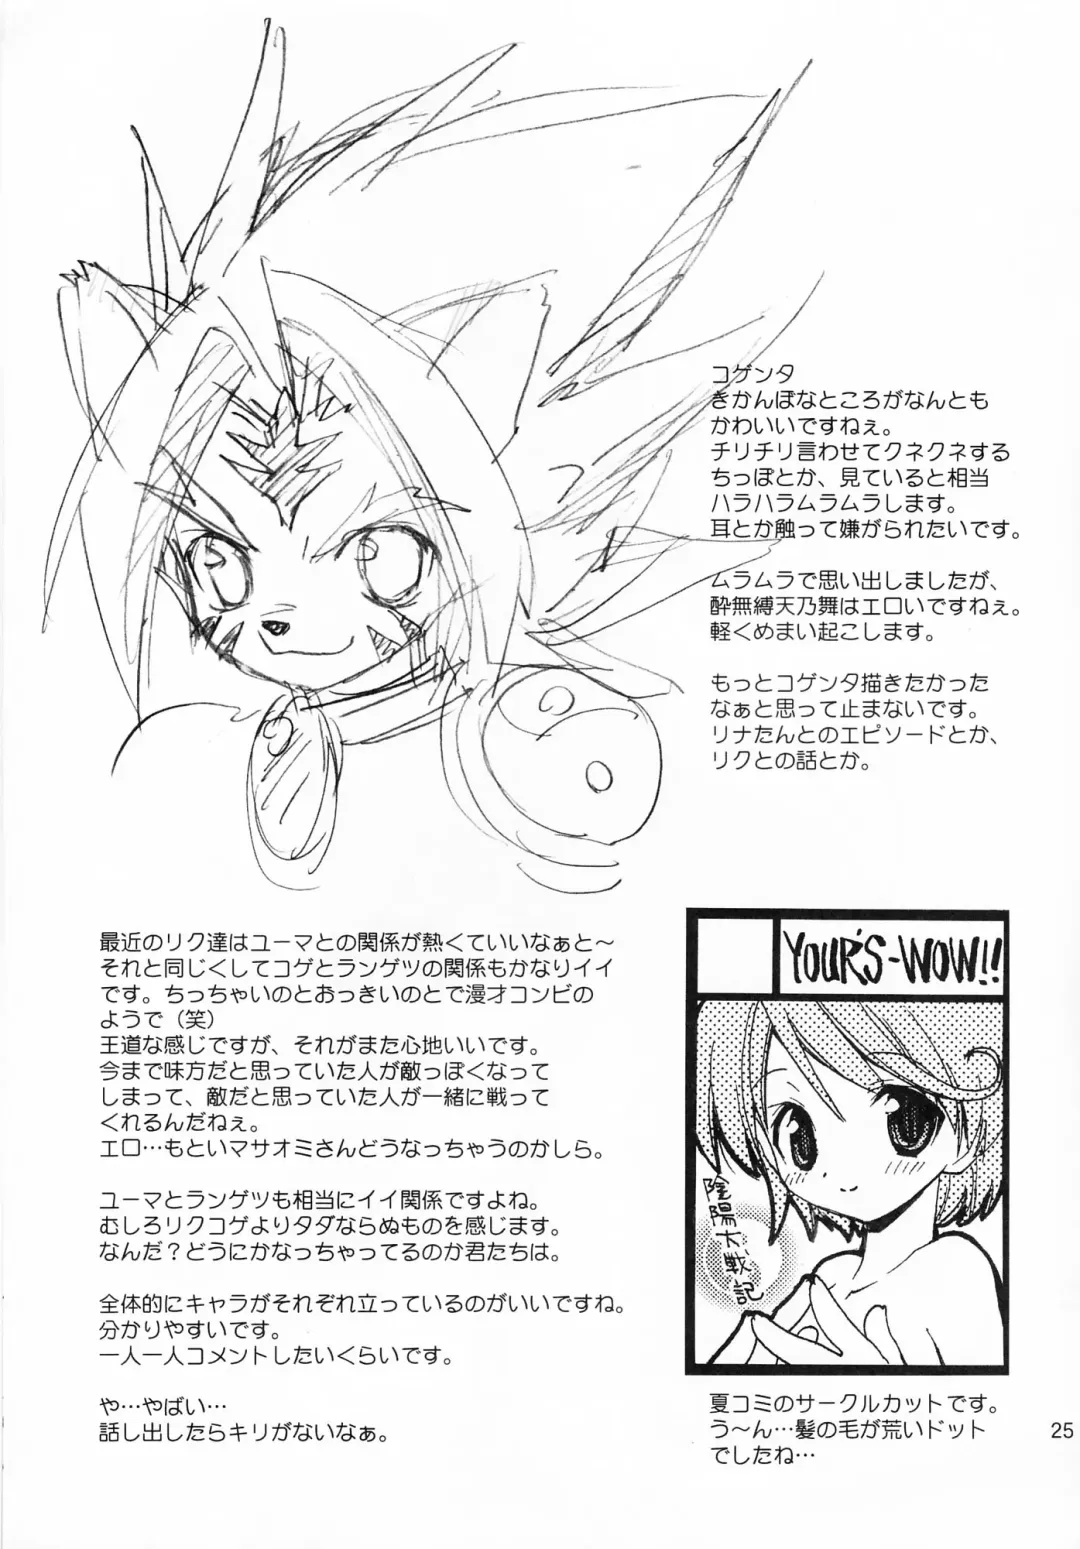 コゲンタ
きかんぼなところがなんとも
かわいいですねぇ。
チリチリ言わせてクネクネする
ちっぽとか、見ていると相当
ハラハラムラムラします。
耳とか触って嫌がられたいです。
ムラムラで思い出しましたが、
酔無縛天乃舞はエロいですねぇ。
軽くめまい起こします。
もっとコゲンタ描きたかった
なぁと思って止まないです。
リナたんとのエピソードとか、
リクとの話とか。
最近のリク達はユーマとの関係が熱くていいなぁと～
それと同じくしてコゲとランゲツの関係もかなりイイ
です。ちっちゃいのとおっきいのとで漫才コンビの
ようで（笑）
王道な感じですが、それがまた心地いいです。
今まで味方だと思っていた人が敵っぽくなって
しまって、敵だと思っていた人が一緒に戦って
くれるんだねぇ。
エロ…もといマサオミさんどうなっちゃうのかしら。
ユーマとランゲツも相当にイイ関係ですよね。
むしろリクコゲよりタダならぬものを感じます。
なんだ？どうにかなっちゃってるのか君たちは。
全体的にキャラがそれぞれ立っているのがいいですね。
分かりやすいです。
一人一人コメントしたいくらいです。
や…やばい…
話し出したらキリがないなぁ。
YOUR'S-WOW!!
陰陽大戦記
夏コミのサークルカットです。
う～ん…髪の毛が荒いドット
でしたね…
25